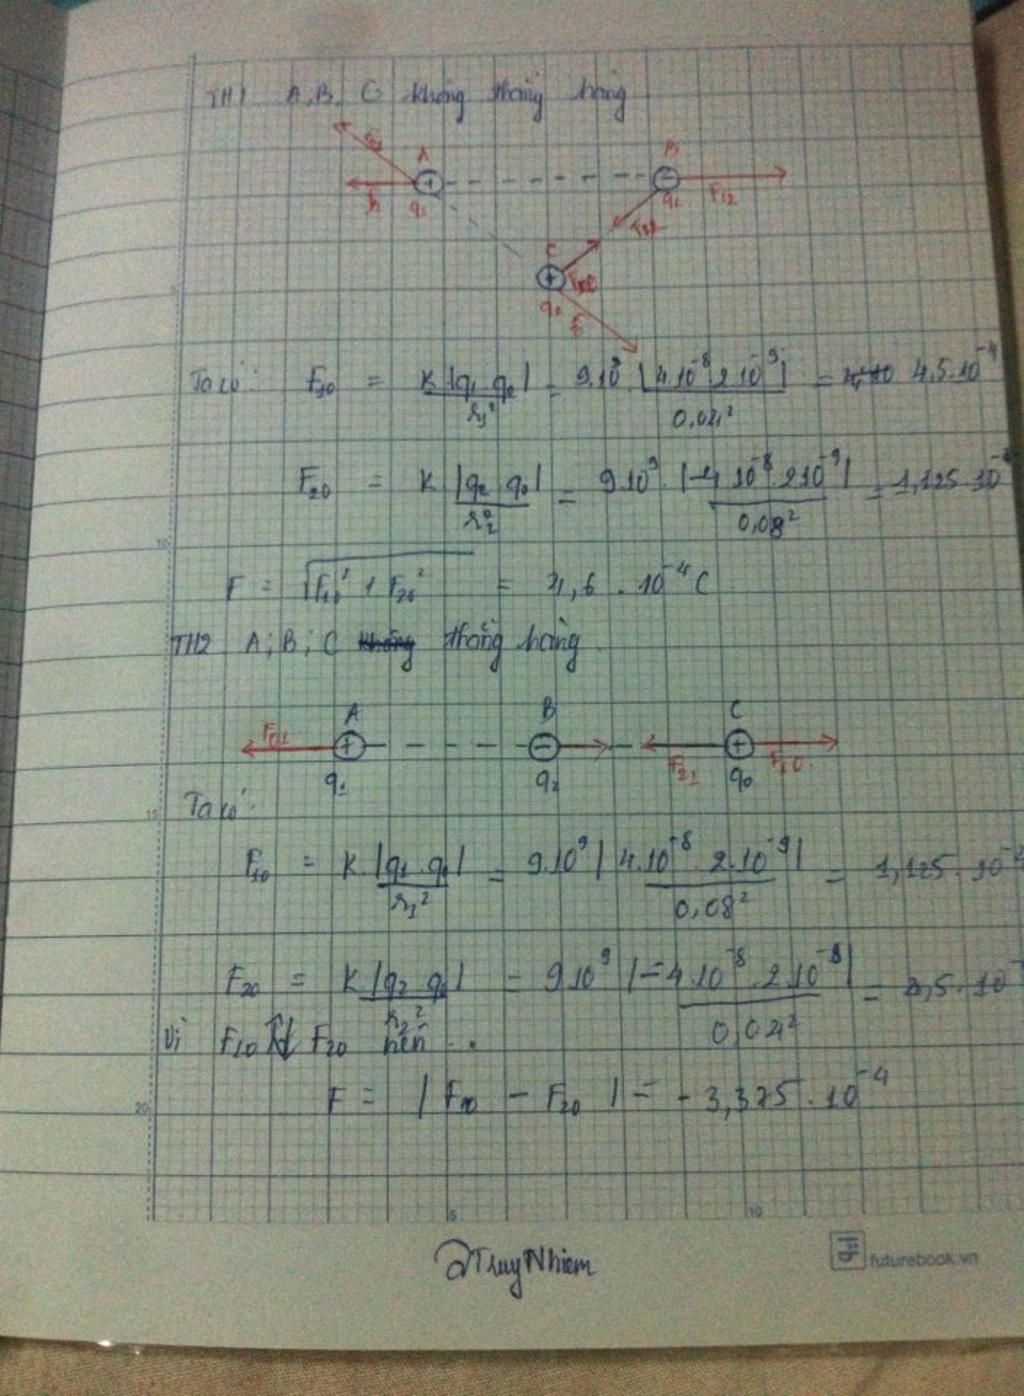 TH1 A, B, C không thẳng hàng
A B
q1 q2 F12
C
q0
Ta có: F10 = K |q1 q0| / r1² = 9.10⁹ |4.10⁻⁸ 2.10⁻⁹| / 0,04² = 4,5.10⁻⁴
F20 = K |q2 q0| / r2² = 9.10⁹ |-4.10⁻⁸ 2.10⁻⁹| / 0,08² = 1,125.10
F = √F10² + F20² = 4,6 . 10⁻⁴ C
TH2 A; B; C thẳng hàng.
A B C
F01 F21 F10
q1 q2 q0
Ta có:
F10 = K |q1 . q0| / r1² = 9.10⁹ | 4.10⁻⁸ . 2.10⁻⁹ | / 0,08² = 1,125 . 10⁻⁴
F20 = K |q2 q0| / r2² = 9.10⁹ |-4.10⁻⁸ . 2.10⁻⁸| / 0,04² = 4,5 . 10
Vì F10 ↑↓ F20 nên :
F = | F10 - F20 | = - 3,375 . 10⁻⁴
5 10
10
15
20
TruyNhiem
futurebook.vn